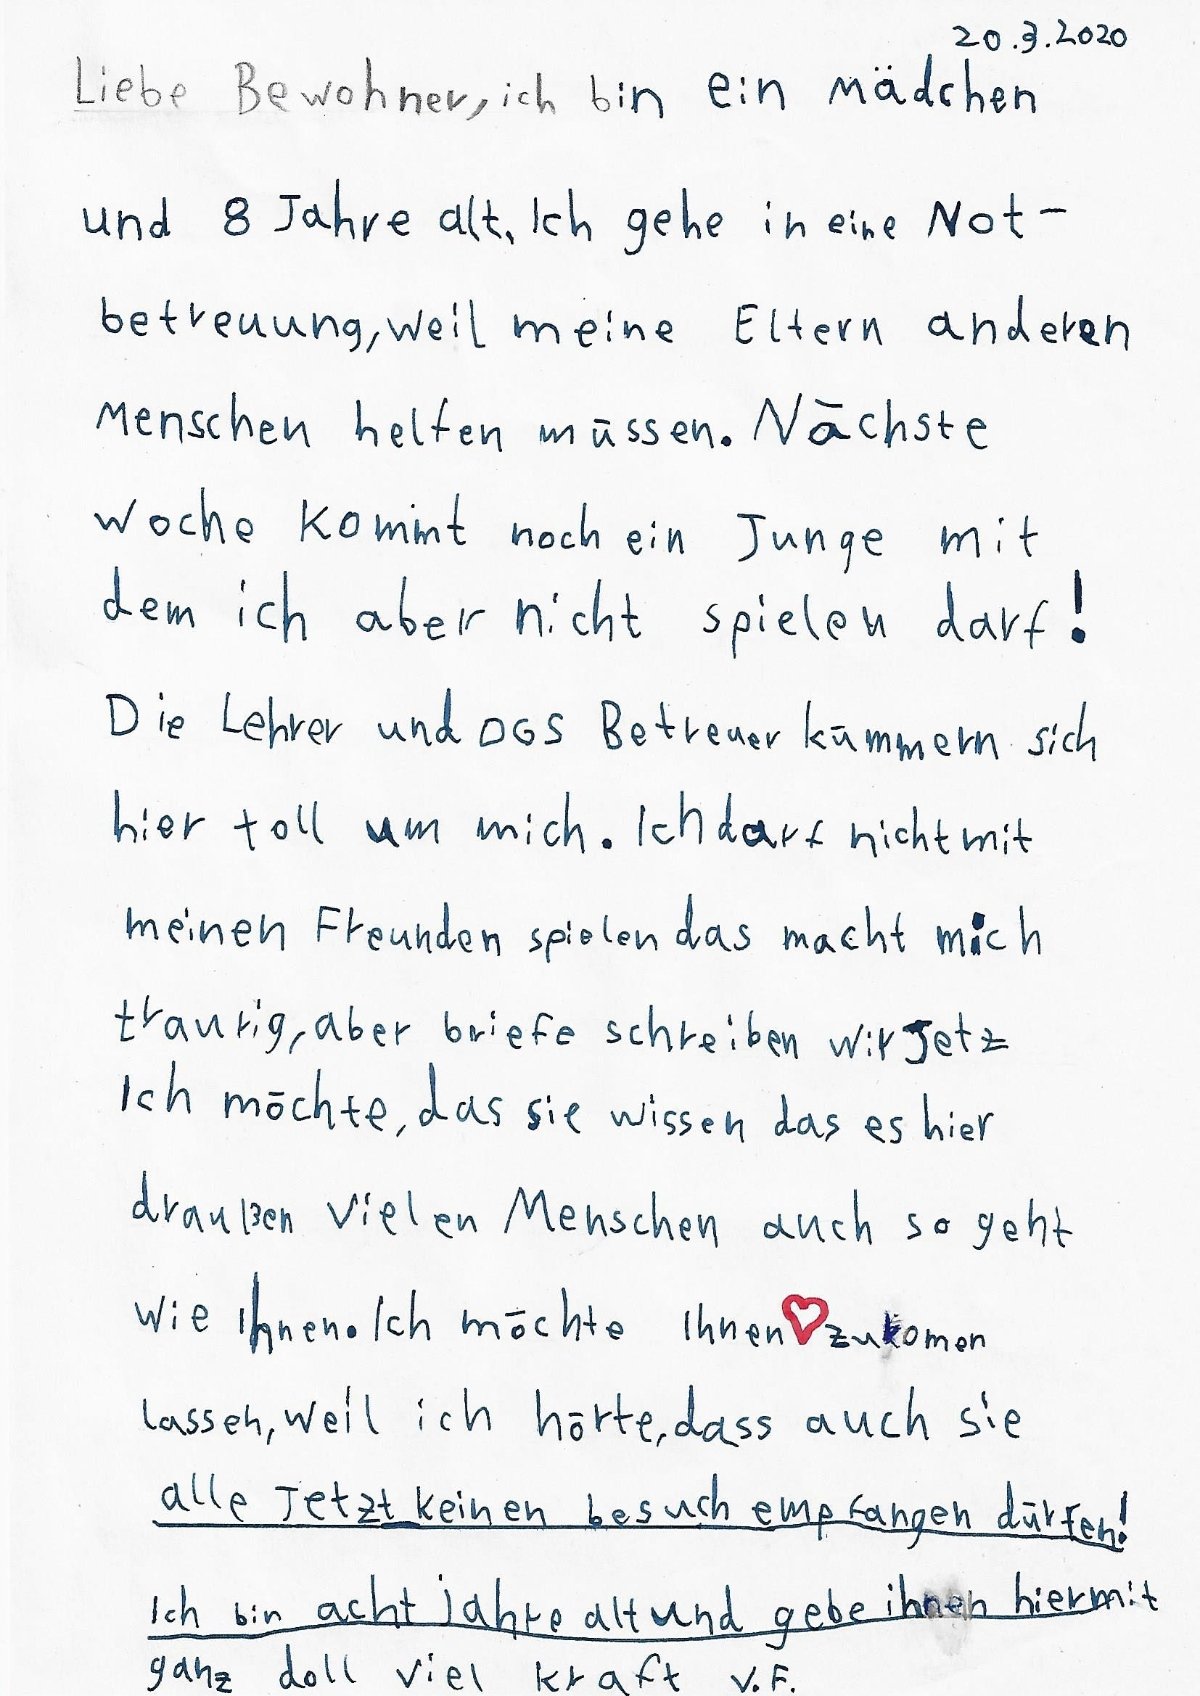 20.3.2020
Liebe Bewohner, ich bin ein Mädchen
und 8 Jahre alt. Ich gehe in eine Not-
betreuung, weil meine Eltern anderen
Menschen helfen müssen. Nächste
Woche kommt noch ein Junge mit
dem ich aber nicht spielen darf!
Die Lehrer und OGS Betreuer kümmern sich
hier toll um mich. Ich darf nicht mit
meinen Freunden spielen das macht mich
traurig, aber briefe schreiben wir Jetz
Ich möchte, das sie wissen das es hier
draußen vielen Menschen auch so geht
wie Ihnen. Ich möchte Ihnen ♡ zukomen
lassen, weil ich hörte, dass auch sie
alle Jetzt keinen besuch empfangen dürfen!
Ich bin acht jahre alt und gebe ihnen hiermit
ganz doll viel kraft v.F.